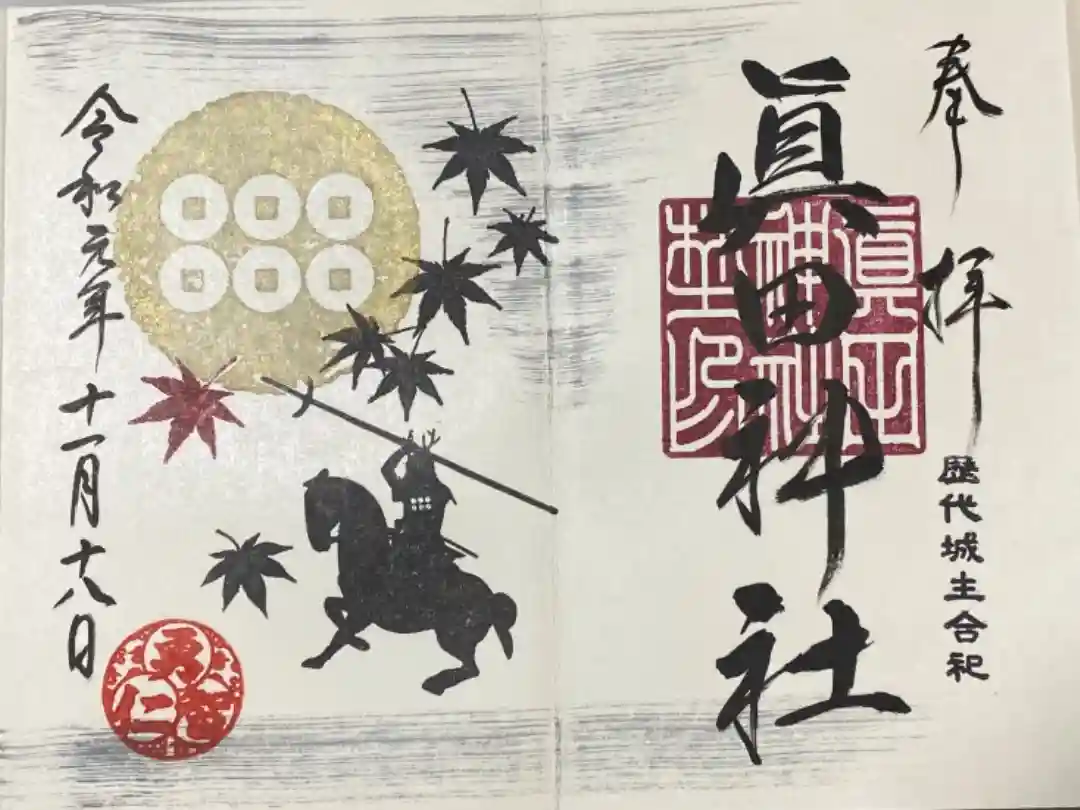 奉拝
歴代城主合祀
眞田神社
眞田神社之印
令和元年十一月十八日
勇
智
仁